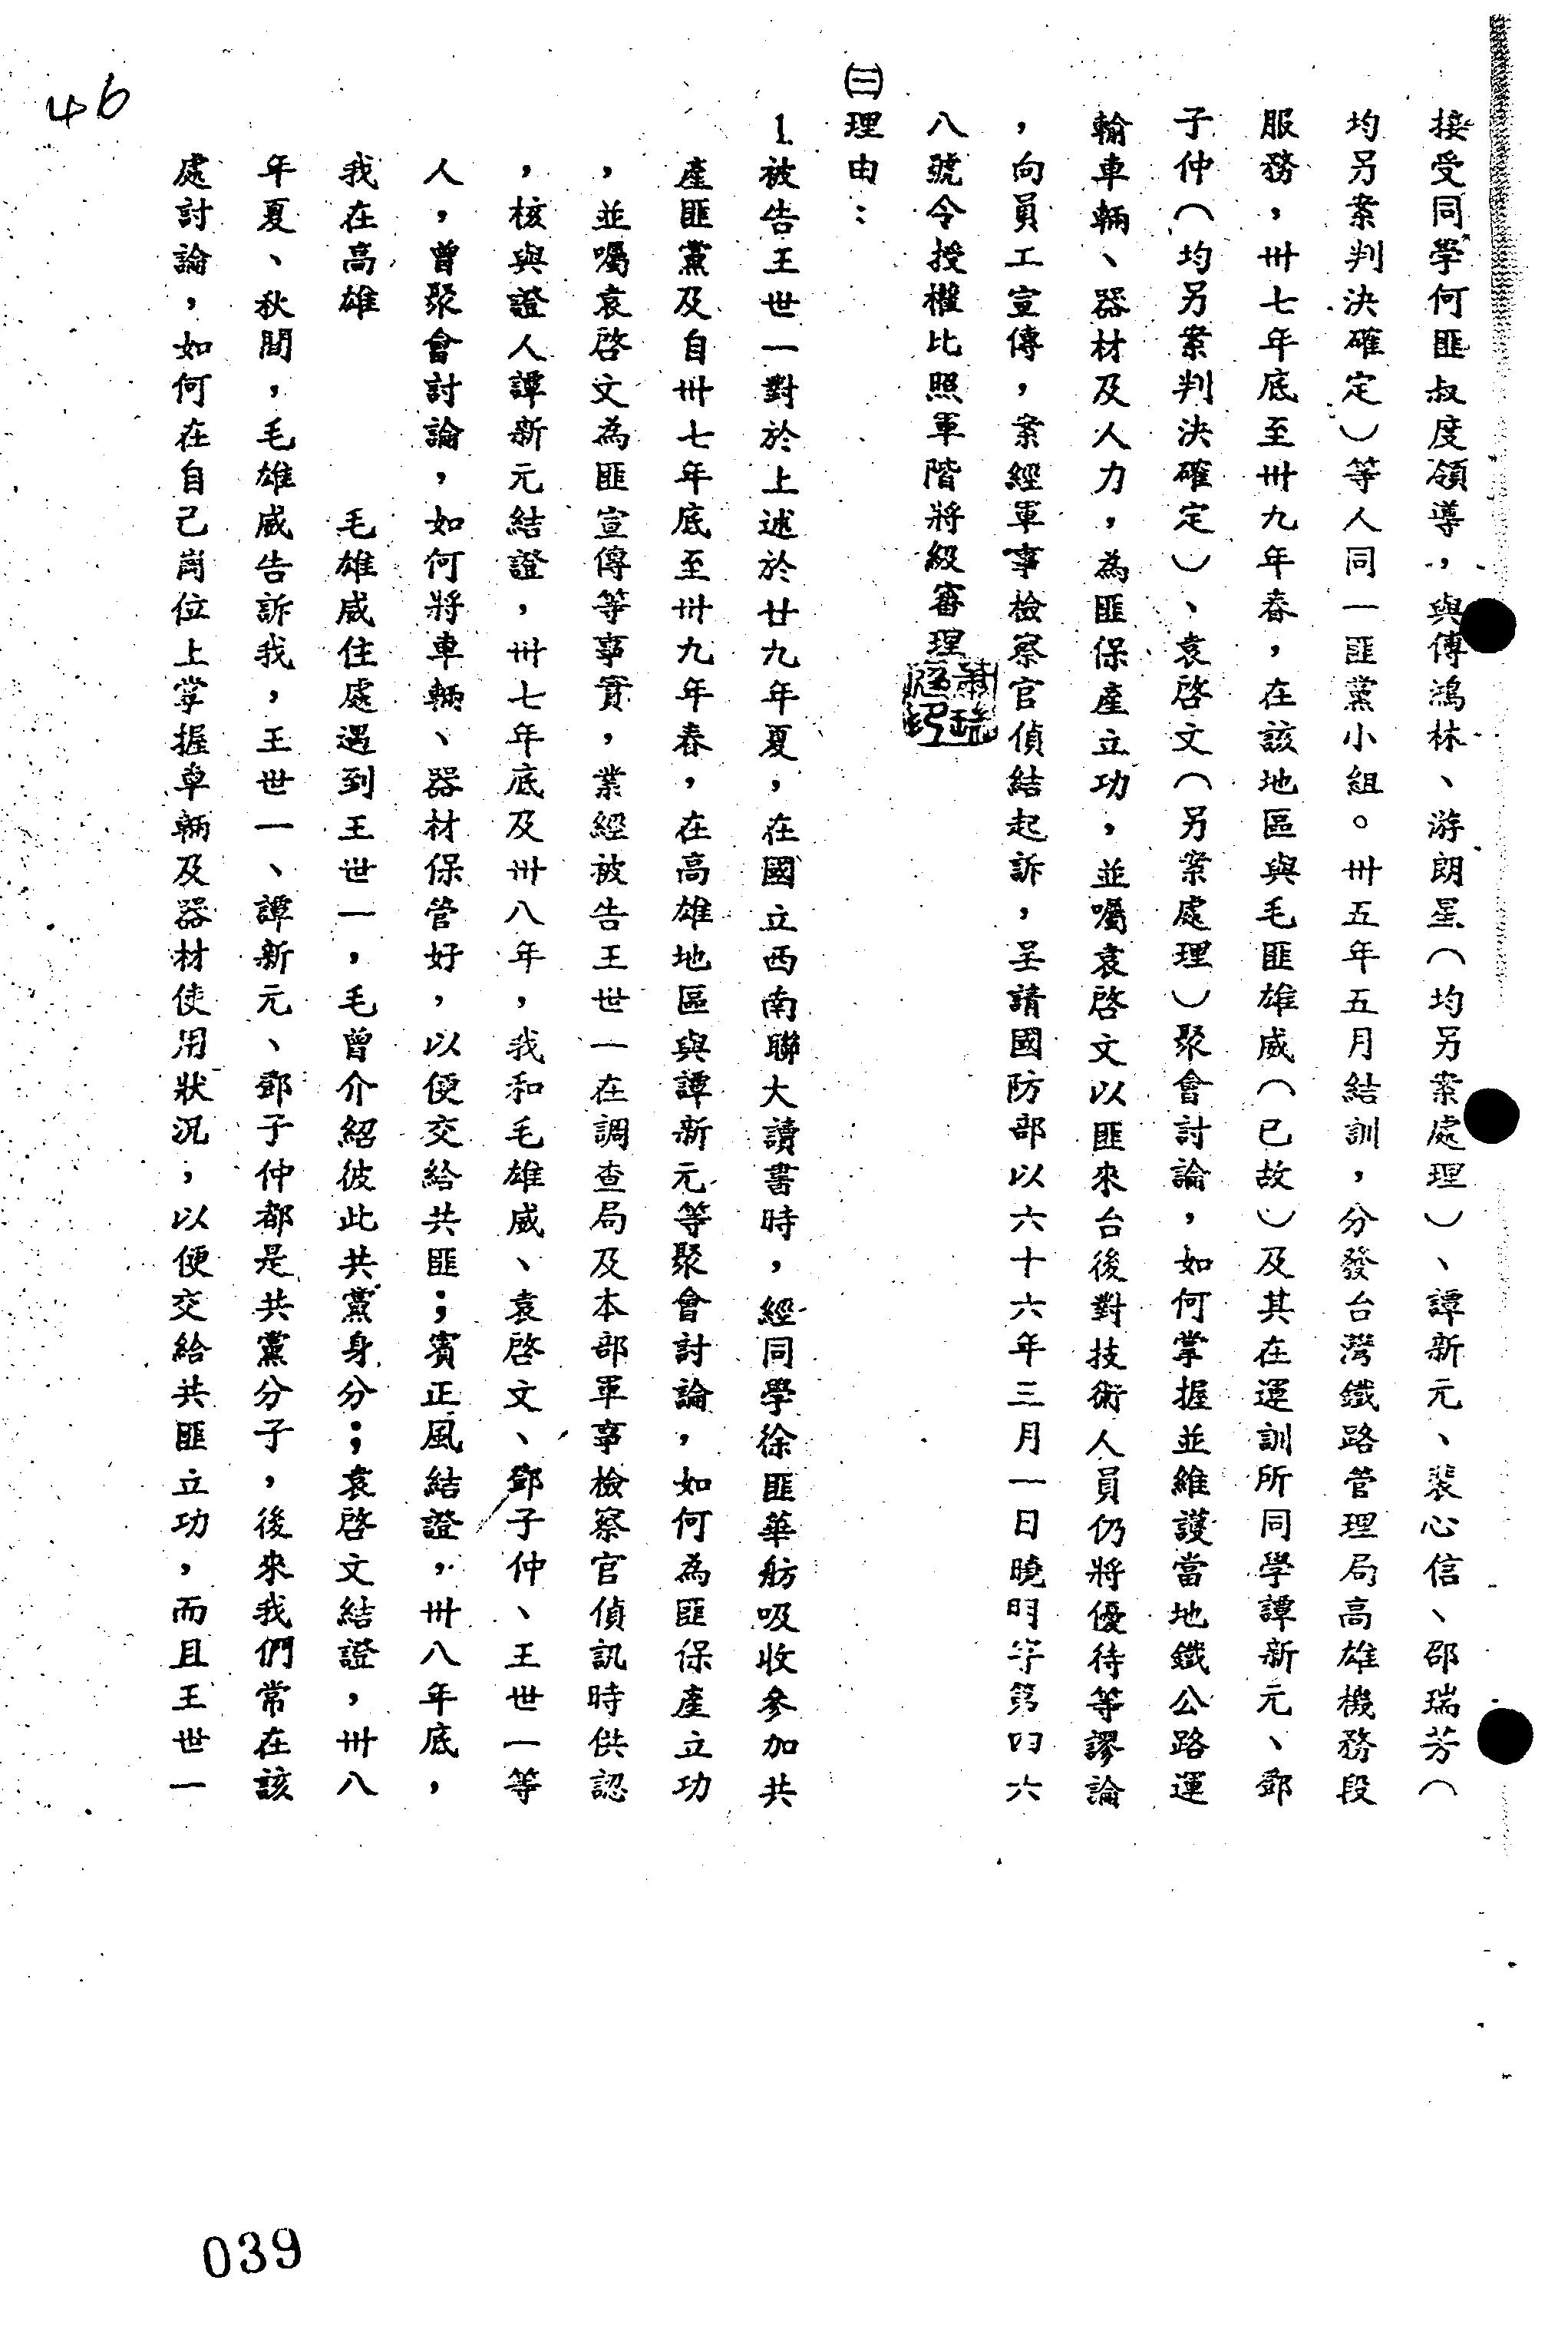 接受同學何匪叔度領導，與傅鴻林、游朗星（均另案處理）、譚新元、裴心信、邵瑞芳（
均另案判決確定）等人同一匪黨小組。卅五年五月結訓，分發台灣鐵路管理局高雄機務段
服務，卅七年底至卅九年春，在該地區與毛匪雄威（已故）及其在運訓所同學譚新元、鄧
子仲（均另案判決確定）、袁啓文（另案處理）聚會討論，如何掌握並維護當地鐵公路運
輸車輛、器材及人力，為匪保產立功，並囑袁啓文以匪來台後對技術人員仍將優待等謬論
，向員工宣傳，案經軍事檢察官偵結起訴，呈請國防部以六十六年三月一日曉明字第四六
八號令授權比照軍階將級審理
㈢理由：
1.被告王世一對於上述於廿九年夏，在國立西南聯大讀書時，經同學徐匪華舫吸收參加共
產匪黨及自卅七年底至卅九年春，在高雄地區與譚新元等聚會討論，如何為匪保產立功
，並囑袁啓文為匪宣傳等事實，業經被告王世一在調查局及本部軍事檢察官偵訊時供認
，核與證人譚新元結證，卅七年底及卅八年，我和毛雄威、袁啓文、鄧子仲、王世一等
人，曾聚會討論，如何將車輛、器材保管好，以便交給共匪；賓正風結證，卅八年底，
我在高雄　　　　毛雄威住處遇到王世一，毛曾介紹彼此共黨身分；袁啓文結證，卅八
年夏、秋間，毛雄威告訴我，王世一、譚新元、鄧子仲都是共黨分子，後來我們常在該
處討論，如何在自己崗位上掌握車輛及器材使用狀況，以便交給共匪立功，而且王世一
46
039